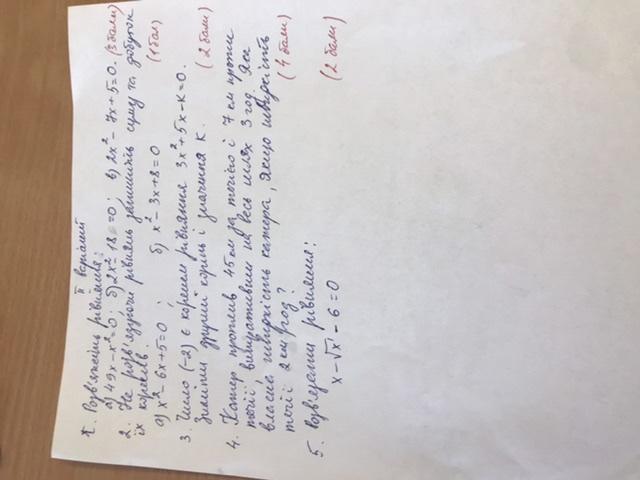 II варіант
1. Розв'яжіть рівняння:
а) 49x-x²=0; б) 2x²-18=0; в) 2x²-7x+5=0. (3 бали)
2. Не розв'язуючи рівнянь запишіть суму та добуток
їх коренів. (1 бал)
а) x²-6x+5=0; б) x²-3x+8=0
3. Число (-2) є коренем рівняння 3x²+5x-к=0.
Знайти другий корінь і значення к. (2 бали)
4. Катер проплив 45 км за течією і 7 км проти
течії, витративши на весь шлях 3 год. Яка
власна швидкість катера, якщо швидкість
течії 2 км/год? (4 бали)
5. Розв'язати рівняння: (2 бали)
x-√x-6=0